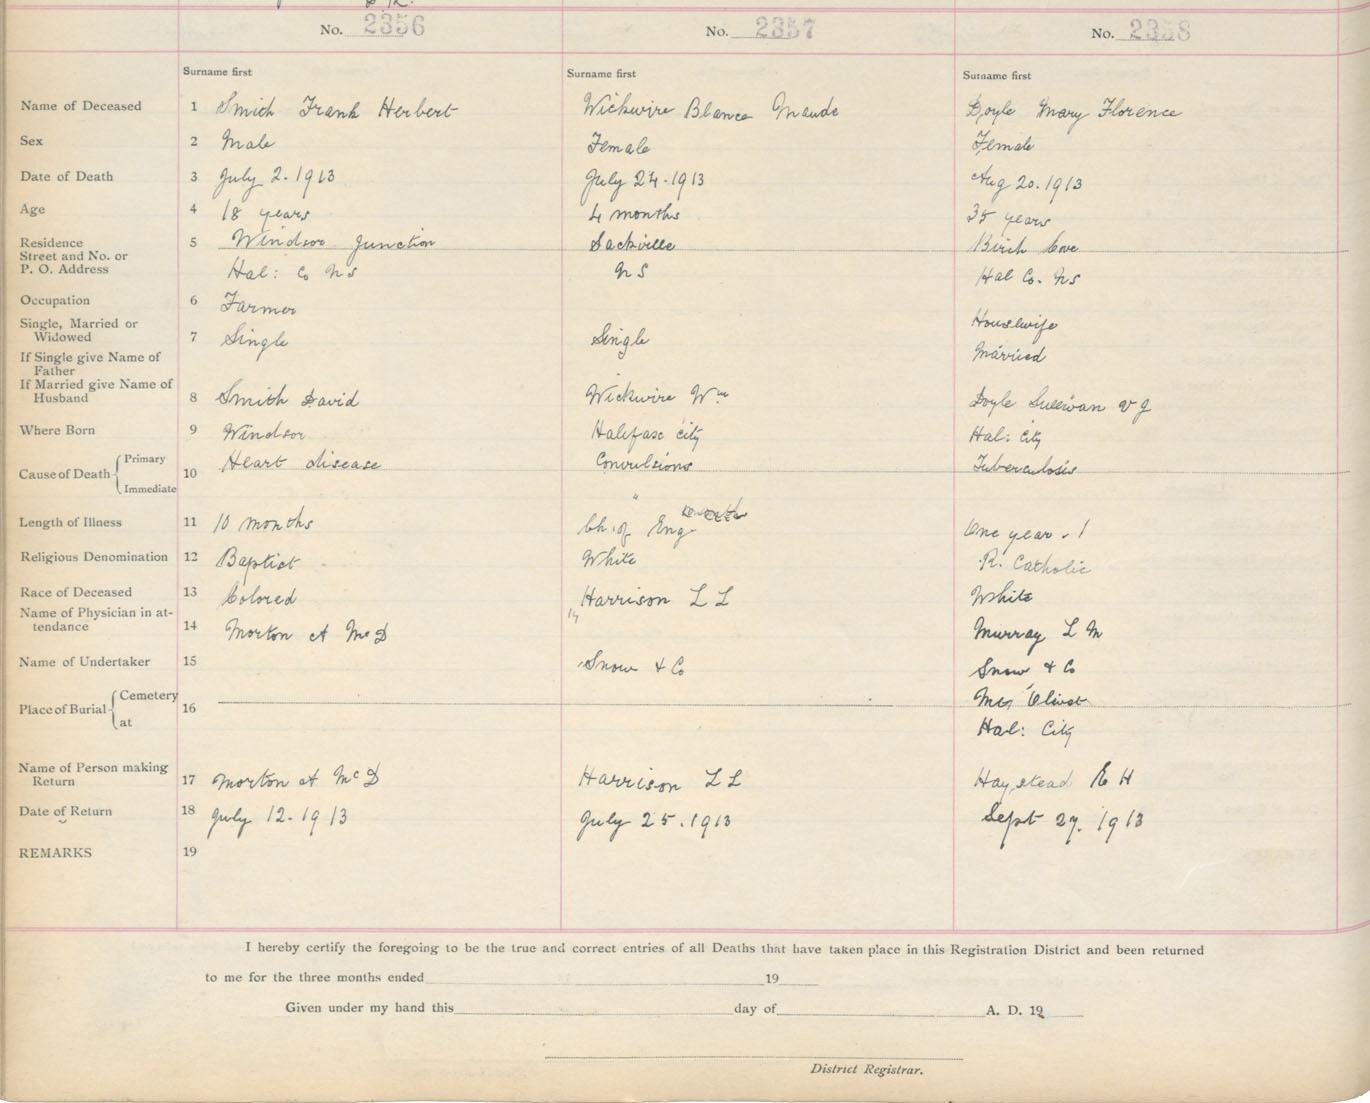 No. 2356 No. 2357 No. 2358
Surname first Surname first Surname first
Name of Deceased 1 Smith Frank Herbert Wickwire Blance Maude Doyle Mary Florence
Sex 2 Male Female Female
Date of Death 3 July 2. 1913 July 24. 1913 Aug 20. 1913
Age 4 18 years 4 months 35 years
Residence 5 Windsor Junction Sackville Birch Cove
Street and No. or
P. O. Address Hal: Co N S N S Hal Co. N S
Occupation 6 Farmer Housewife
Single, Married or
Widowed 7 Single Single Married
If Single give Name of
Father
If Married give Name of
Husband 8 Smith David Wickwire Wm Doyle Sullivan
Where Born 9 Windsor Halifax City Hal: City
Cause of Death Primary 10 Heart disease Convulsions Tuberculosis
Immediate "
Length of Illness 11 10 months Ch. of Eng One year. 1
Religious Denomination 12 Baptist White R. Catholic
Race of Deceased 13 Colored Harrison L L White
Name of Physician in at-
tendance 14 Morton A McD 14 Murray L M
Name of Undertaker 15 Snow & Co Snow & Co
Place of Burial Cemetery 16 Mt Olivet
at Hal: City
Name of Person making
Return 17 Morton A McD Harrison L L Haystead R H
Date of Return 18 July 12. 1913 July 25. 1913 Sept 27. 1913
REMARKS 19
I hereby certify the foregoing to be the true and correct entries of all Deaths that have taken place in this Registration District and been returned
to me for the three months ended 19
Given under my hand this day of A. D. 19
District Registrar.